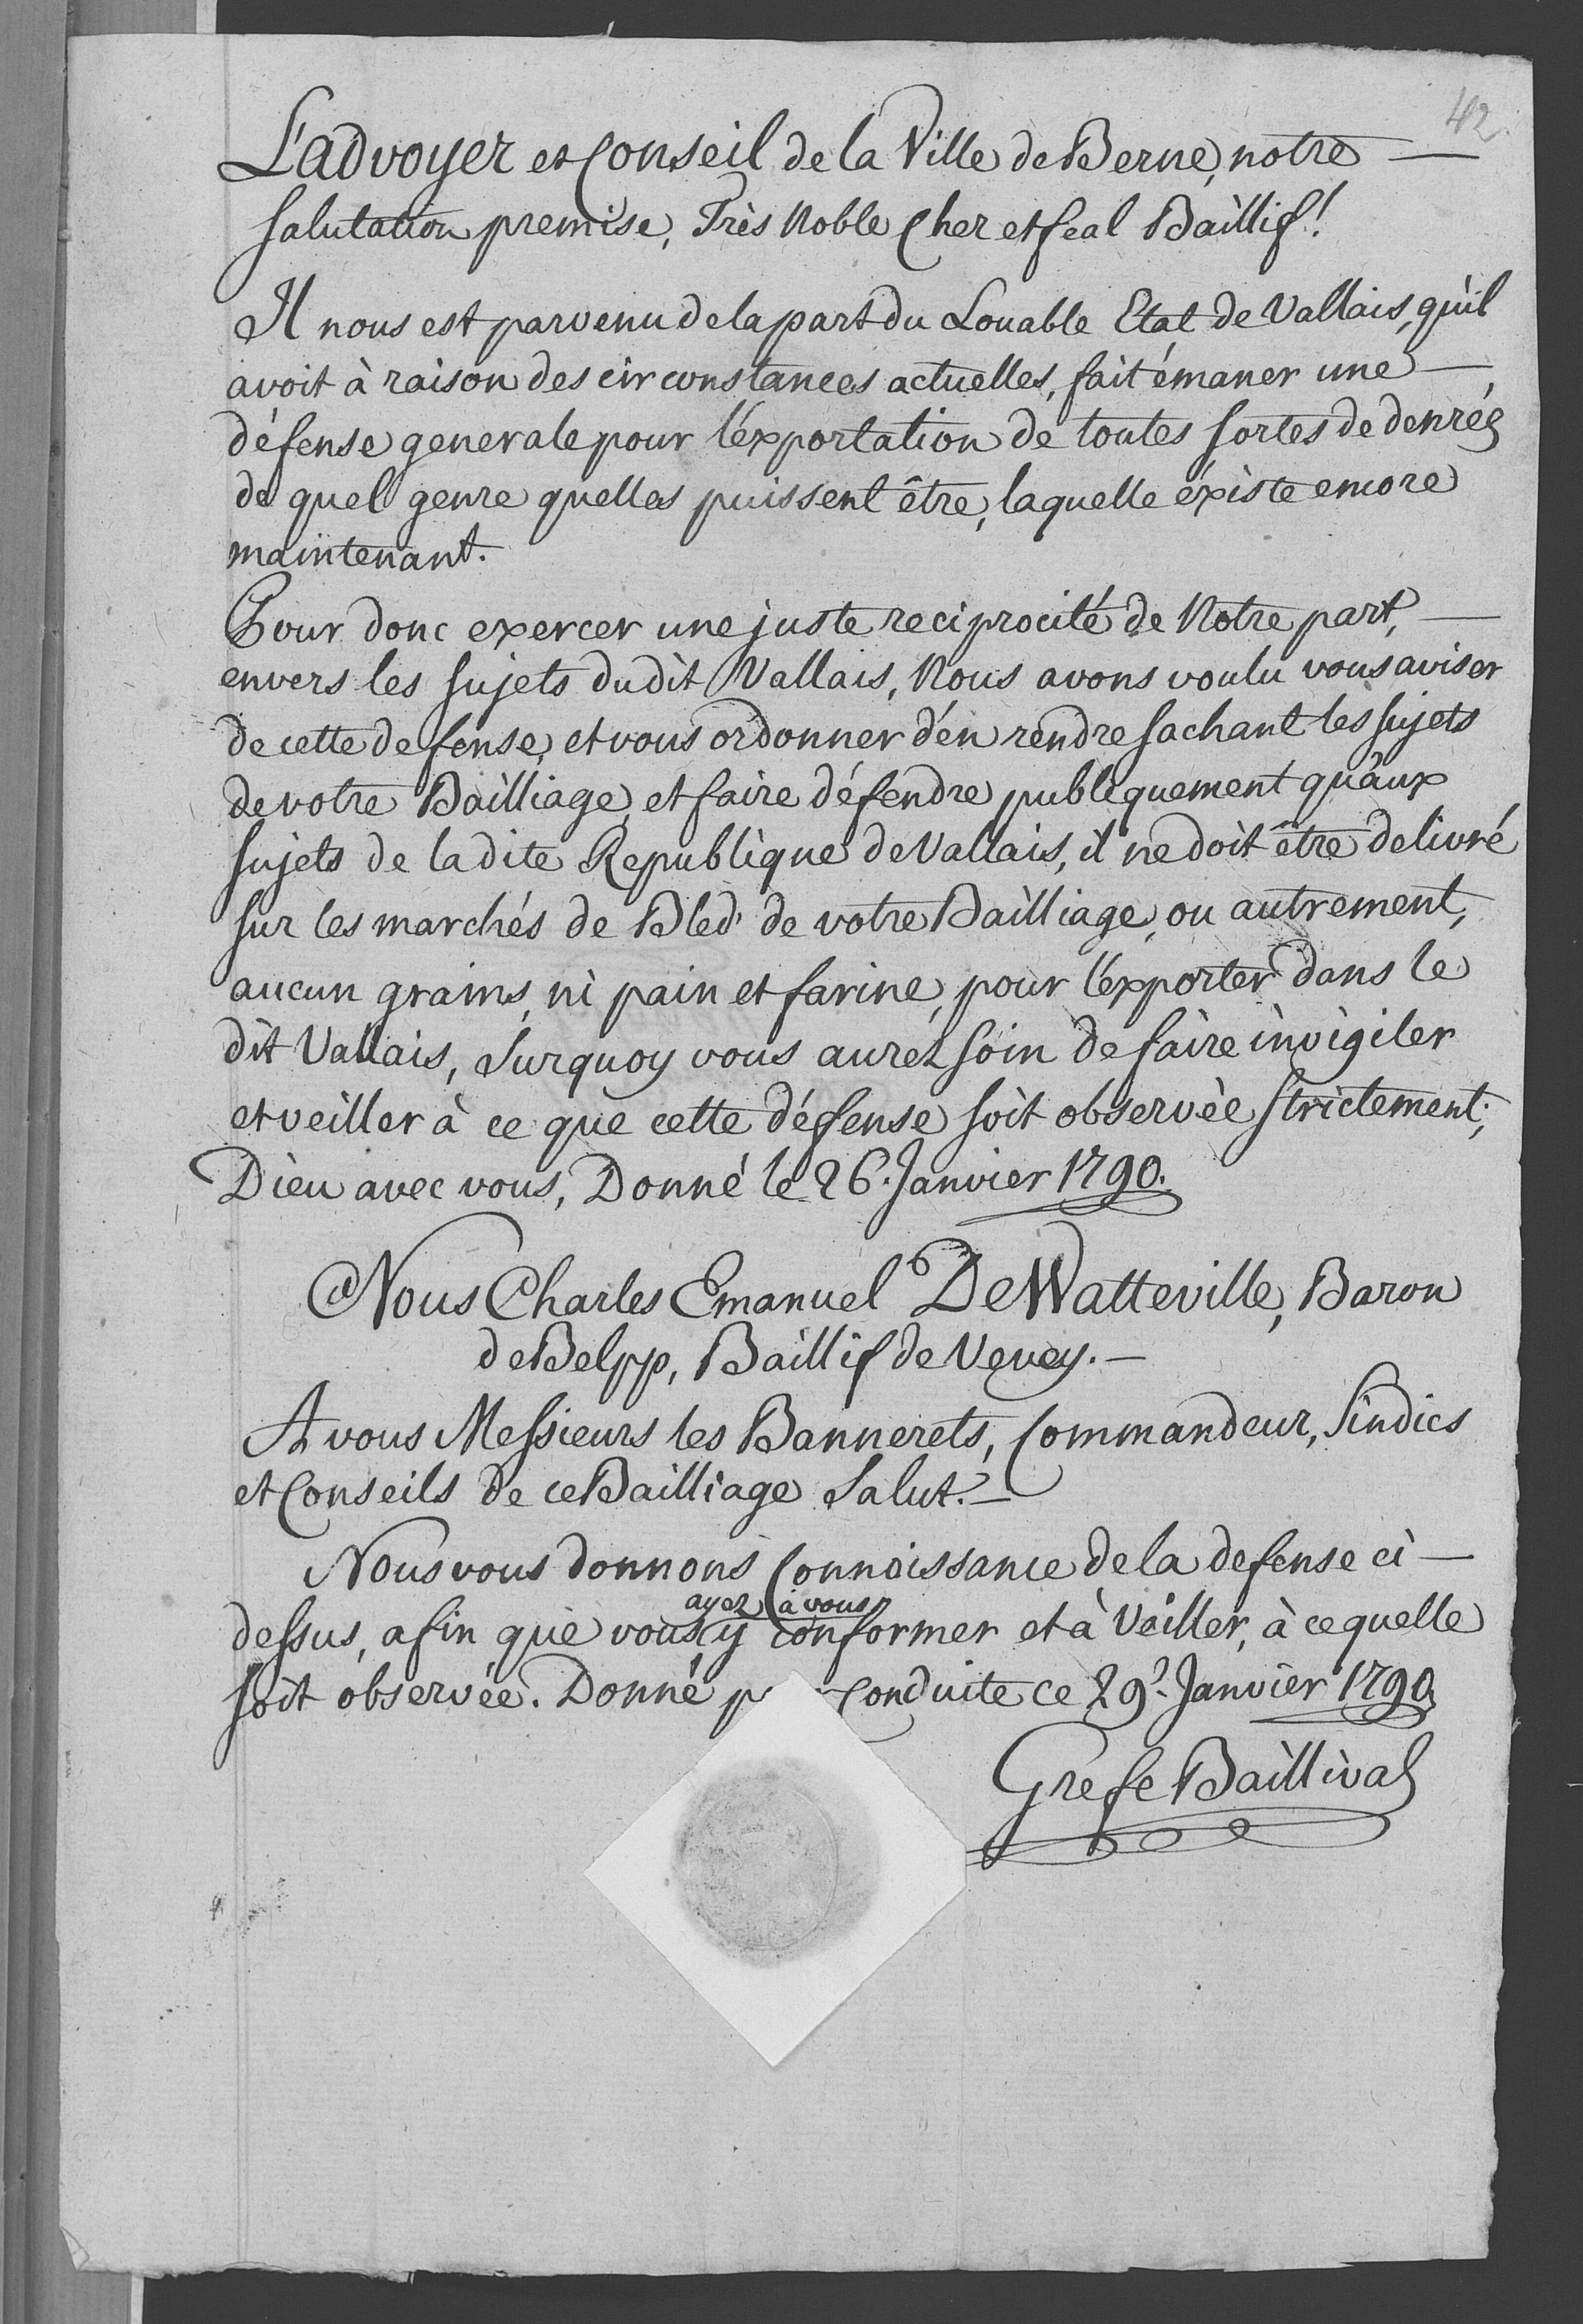 42.
L'advoyer et Conseil de la Ville de Berne, notre —
salutation premise, Très Noble Cher et feal Baillif!
Il nous est parvenu de la part du Louable Etat de Vallais, qu'il
avoit à raison des circonstances actuelles, fait émaner une —,
défense generale pour l'éxportation de toutes sortes de denrés
de quel genre quelles puissent être, laquelle éxiste encore
maintenant.
Pour donc exercer une juste reciprocité de Notre part, —
envers les sujets dudit Vallais, Nous avons voulu vous aviser
de cette defense, et vous ordonner d'en rendre sachant les sujets
de votre Bailliage, et faire défendre publiquement qu'aux
sujets de la dite Republique de Vallais, il ne doit être delivré
sur les marchés de Bled de votre Bailliage, ou autrement,
aucun grains, ni pain et farine, pour l'exporter dans le
dit Vallais, Surquoy vous aurez soin de faire invigiler
et veiller à ce que cette défense soit observèe strictement;
Dieu avec vous, Donné le 26. Janvier 1790.
Nous Charles Emanuel De Watteville, Baron
de Belpp, Baillif de Vevey. —
A vous Messieurs les Bannerets, Commandeur, Sindics
et Conseils de ce Bailliage Salut. —
Nous vous donnons Connoissance de la defense ci —
ayez à vous
dessus, afin que vous y conformer et à Veiller, à ce quelle
soit observée. Donné p Conduite ce 29e. Janvier 1790
Grefe Baillival